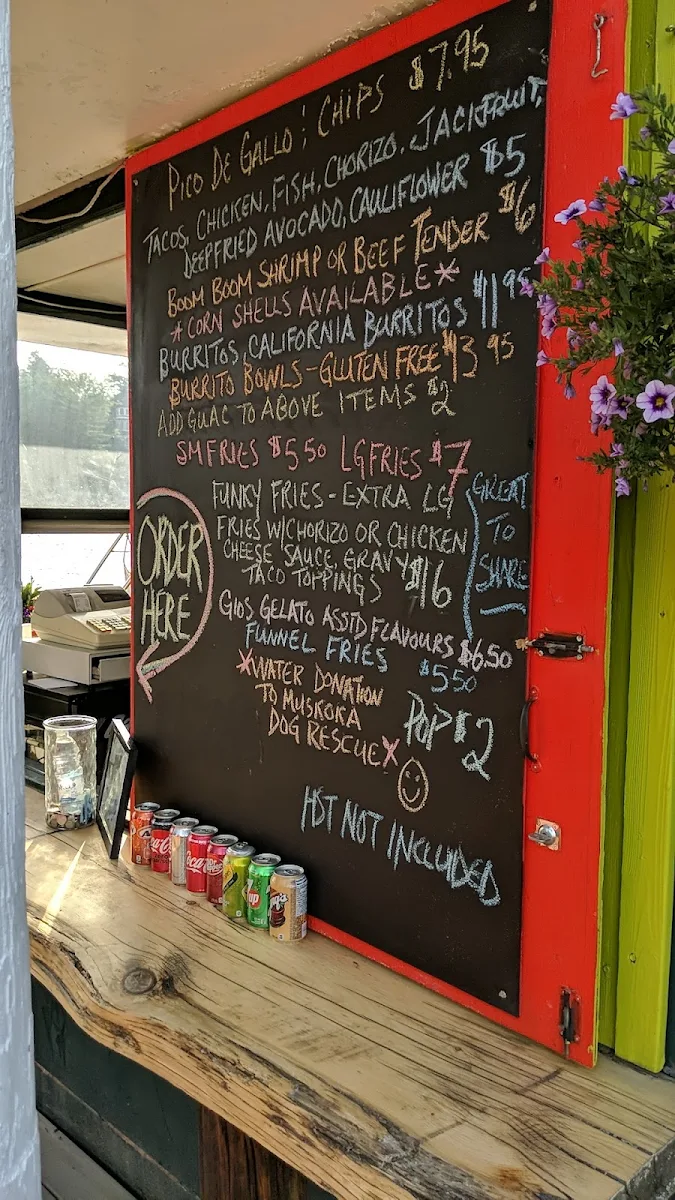 PICO DE GALLO & CHIPS $7.95
TACOS, CHICKEN, FISH, CHORIZO, JACKFRUIT,
DEEPFRIED AVOCADO, CAULIFLOWER $5
BOOM BOOM SHRIMP OR BEEF TENDER $6
*CORN SHELLS AVAILABLE*
BURRITOS, CALIFORNIA BURRITOS $11.95
BURRITO BOWLS-GLUTEN FREE $13.95
ADD GUAC TO ABOVE ITEMS $2
SM FRIES $5.50 LG FRIES $7
FUNKY FRIES - EXTRA LG
FRIES W/CHORIZO OR CHICKEN
CHEESE SAUCE, GRAVY
TACO TOPPINGS $16
GREAT
TO
SHARE
ORDER
HERE
GIOS GELATO ASSTD FLAVOURS $6.50
FUNNEL FRIES $5.50
*WATER DONATION
TO MUSKOKA
DOG RESCUE*
POP $2
HST NOT INCLUDED
Coca-Cola
Coca-Cola
up